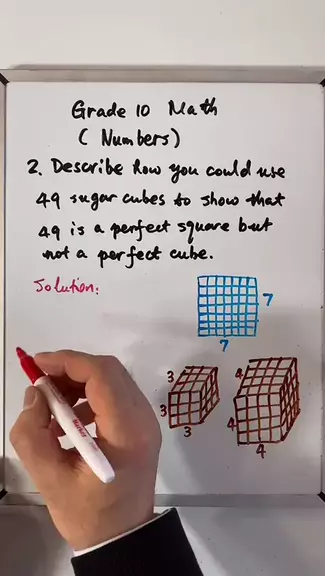 Grade 10 Math
( Numbers)
2. Describe how you could use
49 sugar cubes to show that
49 is a perfect square but
not a perfect cube.
Solution:
7
7
3
3
3
4
4
4